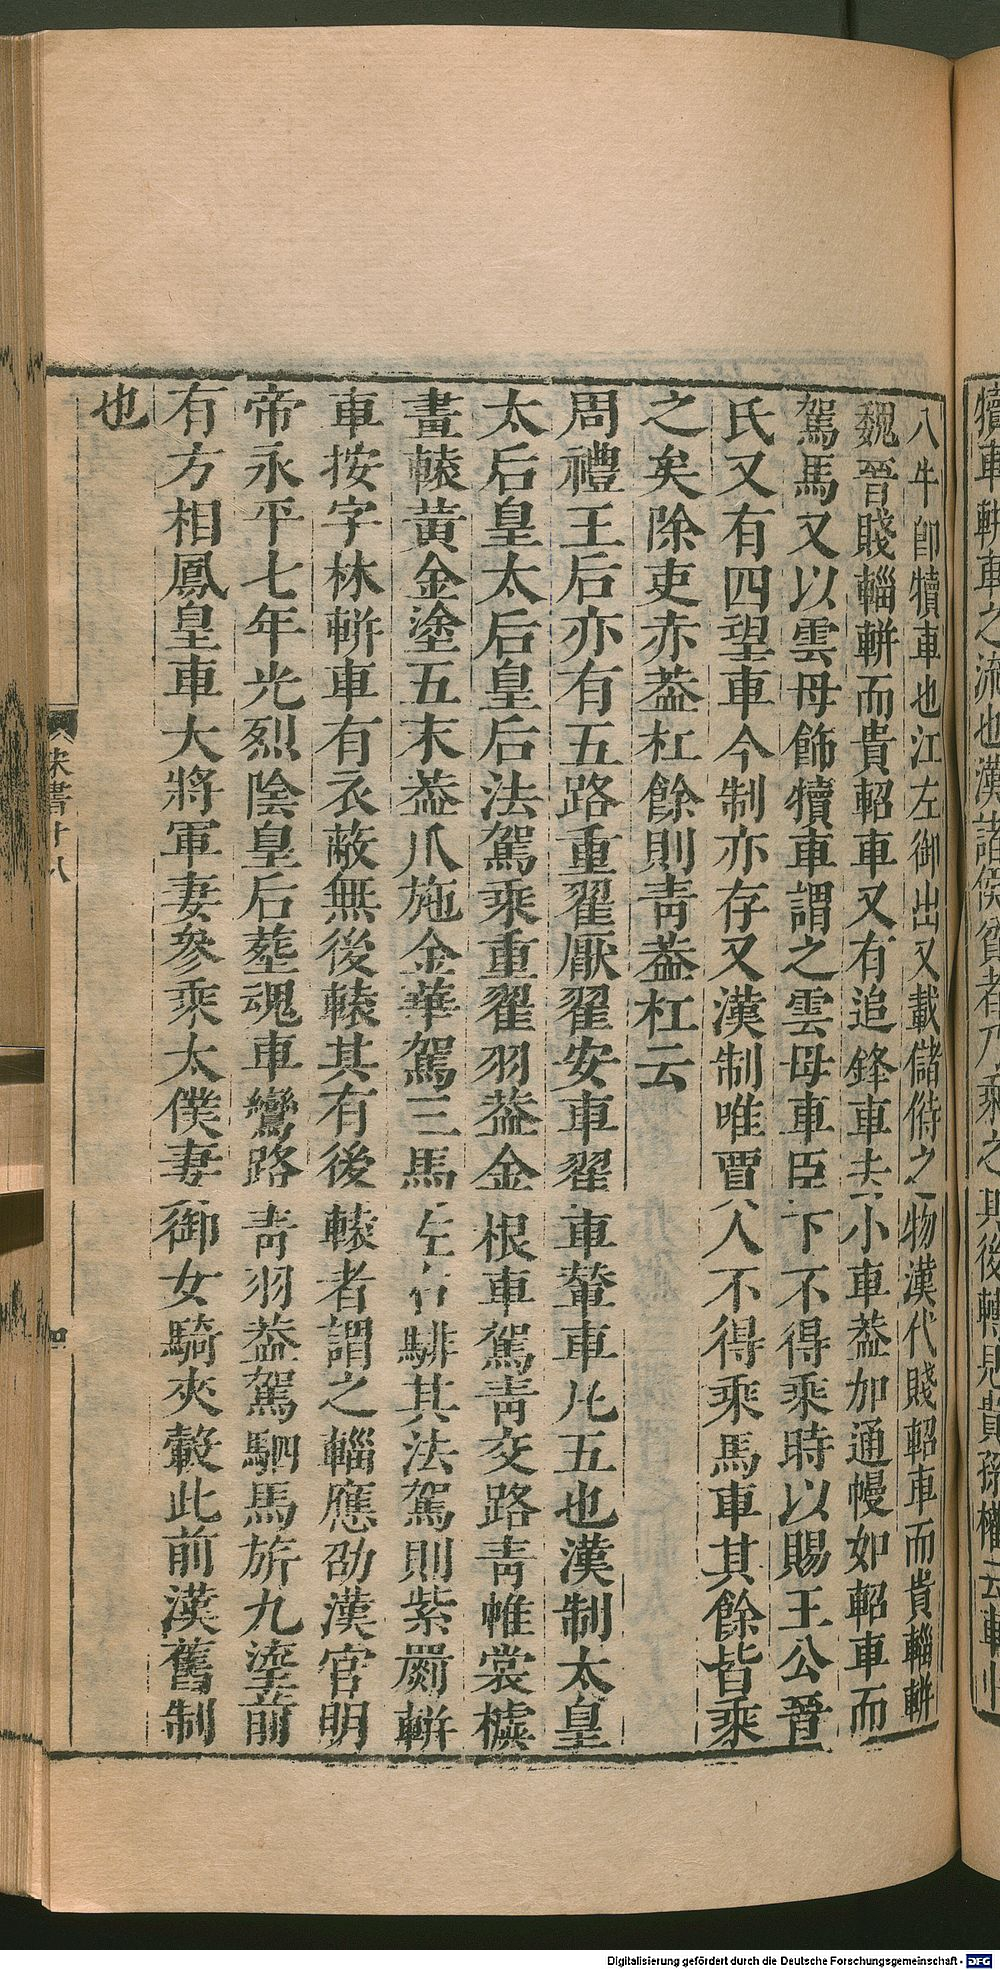 犢車軿車之流也漢諸侯貧者乃乘之其後轉見貴孫權云車
八牛卽犢車也江左御出又載儲偫之物漢代賤軺車而貴輜軿
魏晉賤輜軿而貴軺車又有追鋒車去小車蓋加通幔如軺車而
駕馬又以雲母飾犢車謂之雲母車臣下不得乘時以賜王公晉
氏又有四望車今制亦存又漢制唯賈人不得乘馬車其餘皆乘
之矣除吏赤葢杠餘則靑葢杠云
周禮王后亦有五路重翟厭翟安車翟車輦車凡五也漢制太皇
太后皇太后皇后法駕乘重翟羽葢金根車駕靑交路靑帷裳㯭
畫轅黃金塗五末葢爪施金華駕三馬左右騑其法駕則紫罽軿
車按字林軿車有衣蔽無後轅其有後轅者謂之輜應劭漢官明
帝永平七年光烈陰皇后葬魂車鸞路靑羽葢駕駟馬旂九旒前
有方相鳳皇車大將軍妻參乘太僕妻御女騎夾轂此前漢舊制
也
宋書十八
四
Digitalisierung gefördert durch die Deutsche Forschungsgemeinschaft - DFG